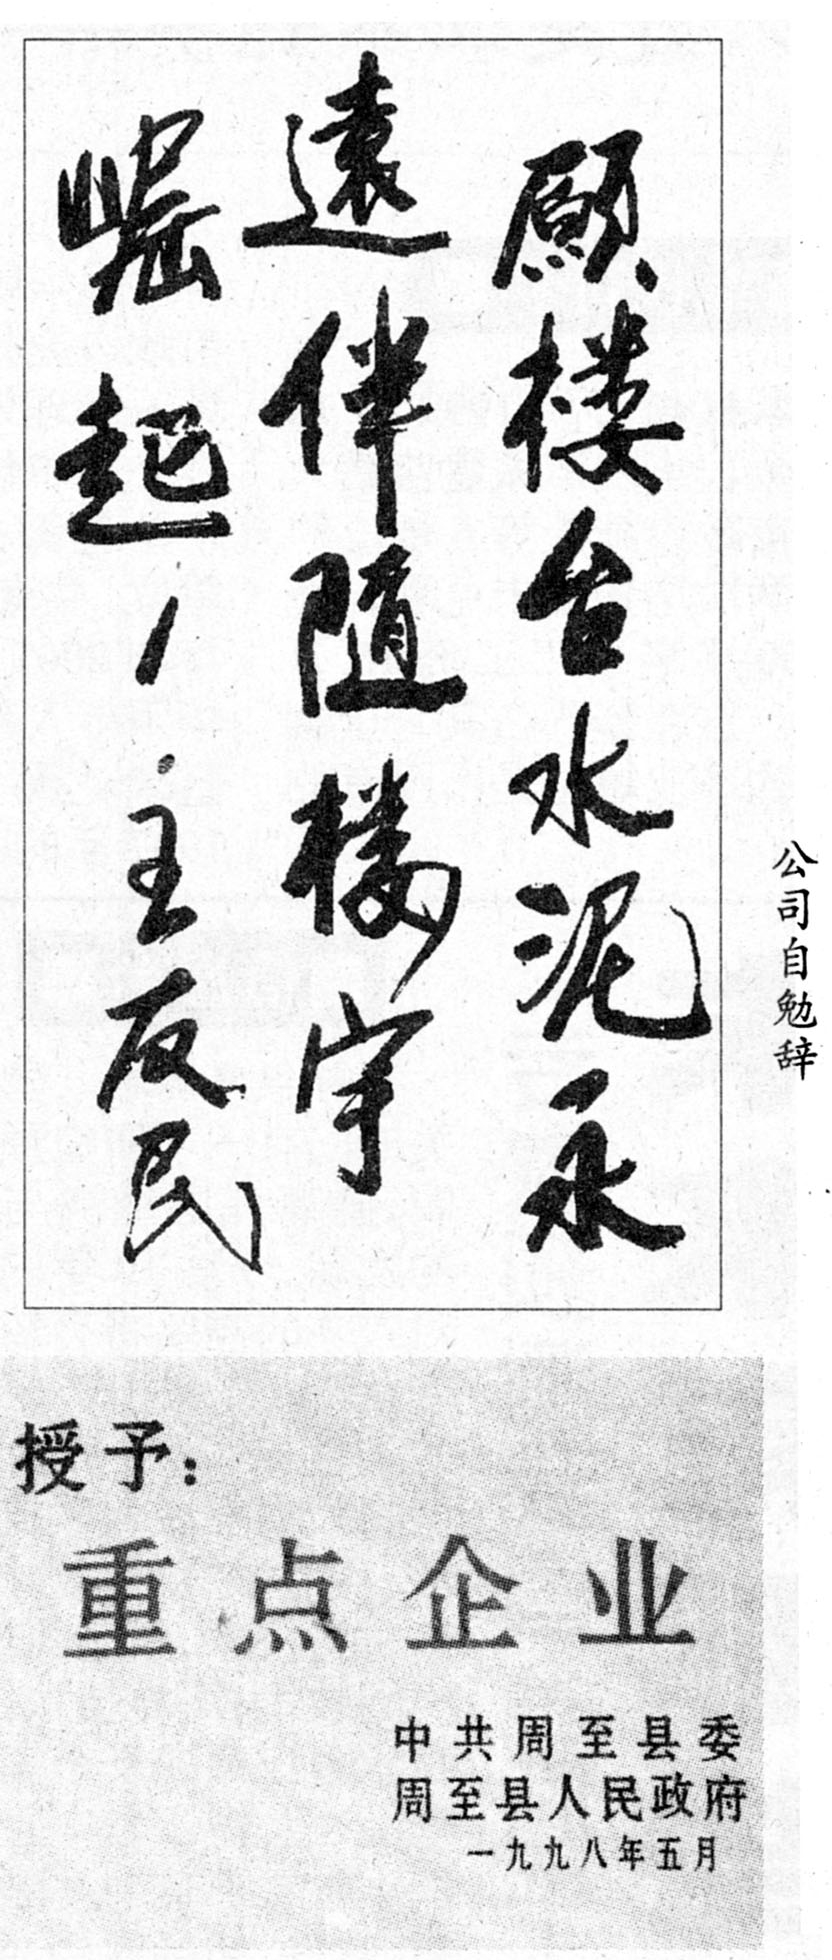 公司自勉辞
願楼台水泥永
遠伴随楼宇
崛起！王友民
授予：
重点企业
中共周至县委
周至县人民政府
一九九八年五月